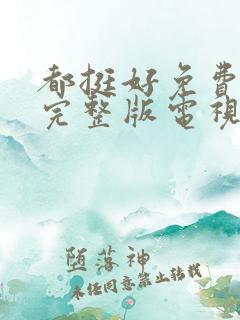 都挺好免费
完整版電視
堕落神
未经同意禁止转载